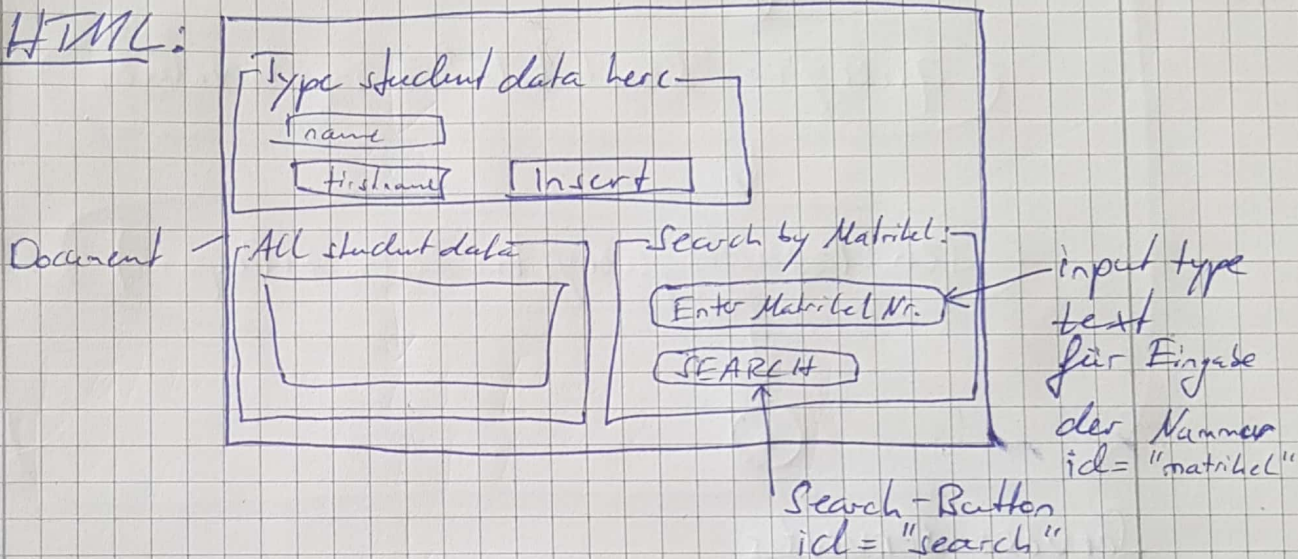 HTML:
Type student data here
name
firstname
Insert
Document
All student data
Search by Matrikel:
Enter Matrikel Nr.
SEARCH
input type
text
für Eingabe
der Nummer
id= "matrikel"
Search-Button
id = "search"